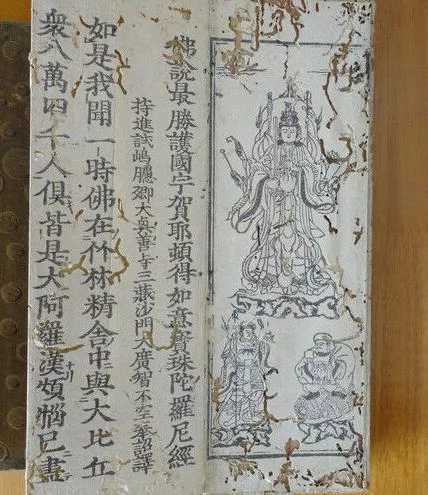 佛說最勝護國宇賀耶頓得如意寶珠陀羅尼經
持進試鴻臚卿大興善寺三藏沙門大廣智不空奉詔譯
如是我聞一時佛在竹林精舍中與大比丘
衆八萬四千人俱皆是大阿羅漢煩惱已盡